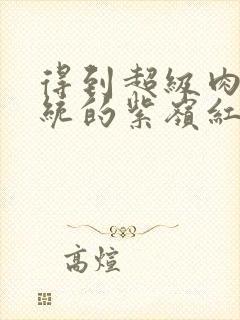 得到超級肉
統的紫嶺紅
高煊